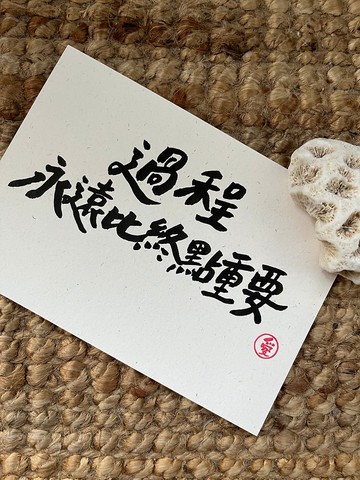 過程
永遠比終點重要
愛